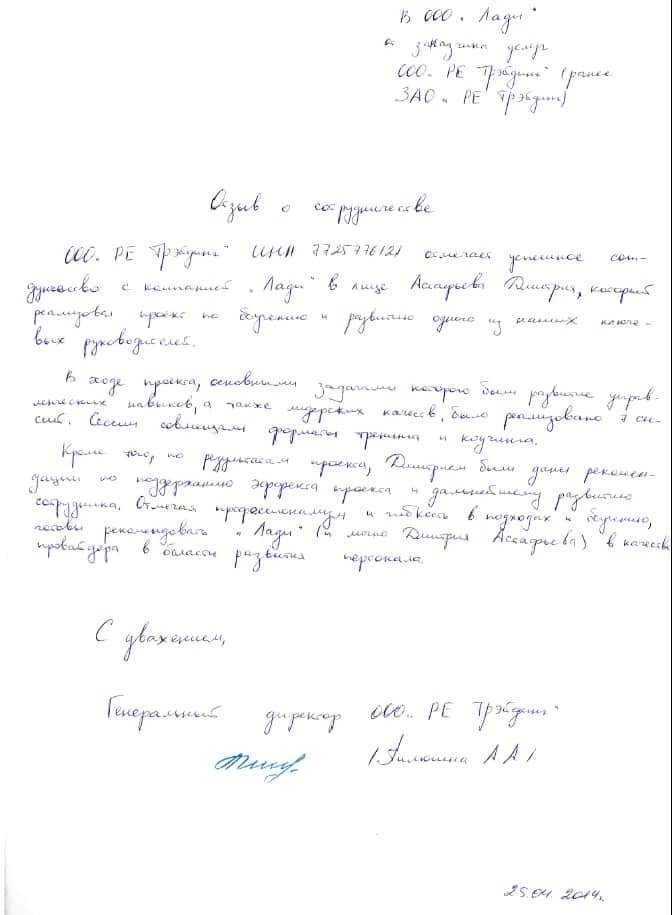 В ООО „Лади"
от заказчика услуг
ООО „РЕ Трэйдинг" (ранее
ЗАО „РЕ Трэйдинг)
Отзыв о сотрудничестве
ООО „РЕ Трэйдинг" ИНН 7725776121 отмечает успешное сот-
дуничество с компанией „Лади" в лице Астафьева Дмитрия, который
реализовал проект по обучению и развитию одного из наших ключе-
вых руководителей.
В ходе проекта, основными задачами которого были развитие управ-
ленческих навыков, а также лидерских качеств, было реализовано 7 сес-
сий. Сессии совмещали форматы тренинга и коучинга.
Кроме того, по результатам проекта, Дмитрием были даны рекомен-
дации по поддержанию эффекта проекта и дальнейшему развитию
сотрудника. Отмечая профессионализм и гибкость в подходах к обучению,
готовы рекомендовать „Лади" (и лично Дмитрия Астафьева) в качестве
провайдера в области развития персонала.
С уважением,
Генеральный директор ООО „РЕ Трэйдинг"
/ Анилюшина А А /
25.04.2014г.